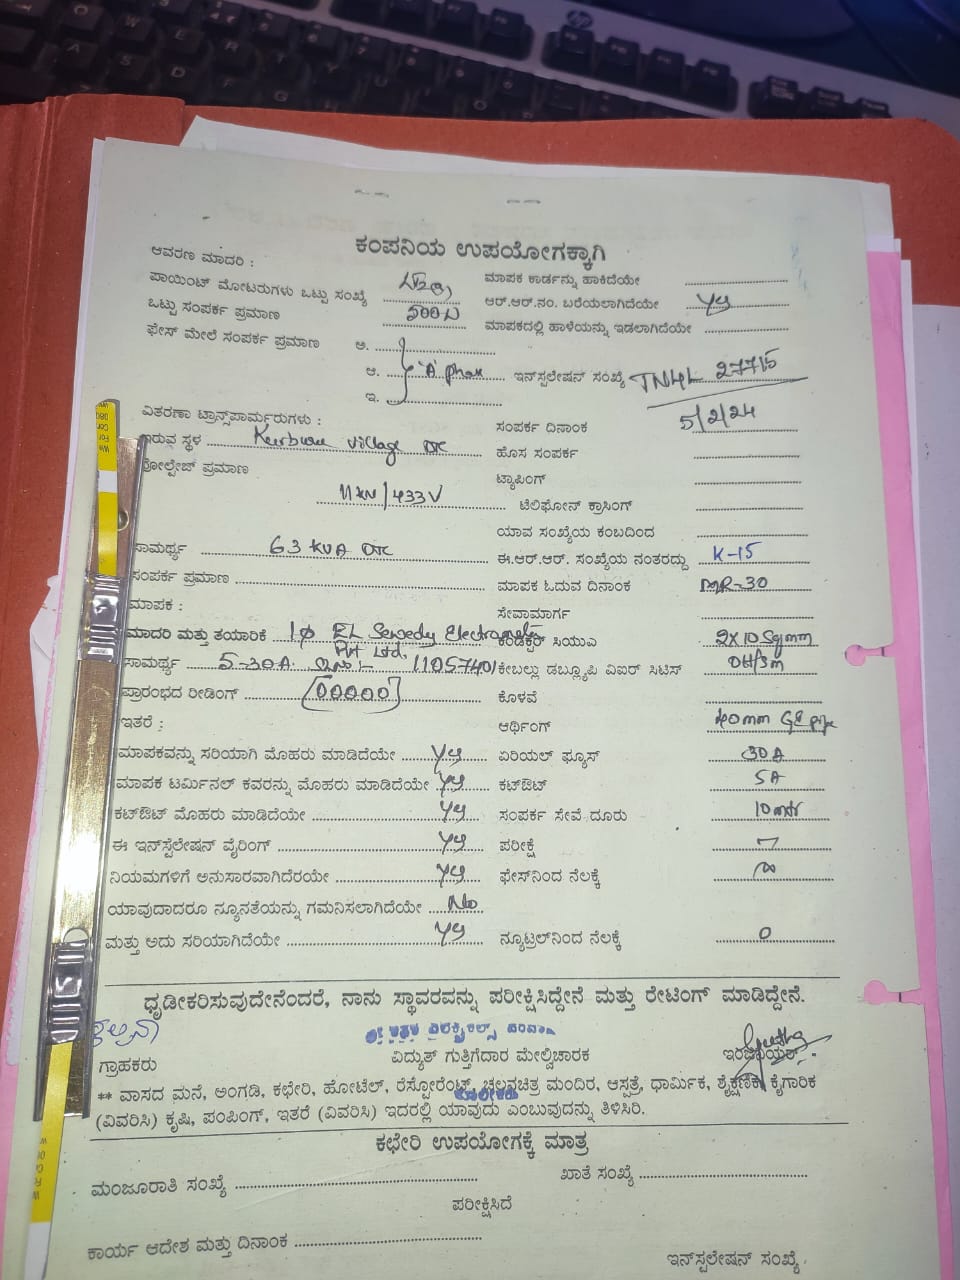 ಕಂಪನಿಯ ಉಪಯೋಗಕ್ಕಾಗಿ
ಆವರಣ ಮಾದರಿ :
ಮಾಪಕ ಕಾರ್ಡನ್ನು ಹಾಕಿದೆಯೇ
ಪಾಯಿಂಟ್ ಮೋಟರುಗಳು ಒಟ್ಟು ಸಂಖ್ಯೆ
ಆರ್.ಆರ್.ನಂ. ಬರೆಯಲಾಗಿದೆಯೇ Yes
ಒಟ್ಟು ಸಂಪರ್ಕ ಪ್ರಮಾಣ 500W
ಮಾಪಕದಲ್ಲಿ ಹಾಳೆಯನ್ನು ಇಡಲಾಗಿದೆಯೇ
ಫೇಸ್ ಮೇಲೆ ಸಂಪರ್ಕ ಪ್ರಮಾಣ ಅ.
ಆ. 'A' phase ಇನ್ಸ್ಟಲೇಷನ್ ಸಂಖ್ಯೆ TNHL 27715
ಇ.
ವಿತರಣಾ ಟ್ರಾನ್ಸ್‌ಪಾರ್ಮರುಗಳು :
ಸಂಪರ್ಕ ದಿನಾಂಕ 5/2/24
ಇರುವ ಸ್ಥಳ village
ಹೊಸ ಸಂಪರ್ಕ
ವೋಲ್ಟೇಜ್ ಪ್ರಮಾಣ
ಟ್ಯಾಪಿಂಗ್
11KV/433V ಟೆಲಿಫೋನ್ ಕ್ರಾಸಿಂಗ್
ಯಾವ ಸಂಖ್ಯೆಯ ಕಂಬದಿಂದ
ಸಾಮರ್ಥ್ಯ 63 KVA
ಈ.ಆರ್.ಆರ್. ಸಂಖ್ಯೆಯ ನಂತರದ್ದು K-15
ಸಂಪರ್ಕ ಪ್ರಮಾಣ
ಮಾಪಕ ಓದುವ ದಿನಾಂಕ MR-30
ಮಾಪಕ :
ಸೇವಾಮಾರ್ಗ
ಮಾದರಿ ಮತ್ತು ತಯಾರಿಕೆ 1φ EL Sewedy Electrometer Pvt Ltd,
ಕಂಡಕ್ಟರ್ ಸಿಯುಎ 2X10 Sqmm
ಸಾಮರ್ಥ್ಯ 5-30A 11057401
ಕೇಬಲ್ಲು ಡಬ್ಲ್ಯೂಪಿ ಎಐರ್ ಸಿಟಿಸ್
ಪ್ರಾರಂಭದ ರೀಡಿಂಗ್ [00000]
ಕೊಳವೆ
ಇತರೆ :
ಆರ್ಥಿಂಗ್ 40mm GI pipe
ಮಾಪಕವನ್ನು ಸರಿಯಾಗಿ ಮೊಹರು ಮಾಡಿದೆಯೇ Yes
ಏರಿಯಲ್ ಫ್ಯೂಸ್ 30A
ಮಾಪಕ ಟರ್ಮಿನಲ್ ಕವರನ್ನು ಮೊಹರು ಮಾಡಿದೆಯೇ Yes
ಕಟ್‌ಔಟ್ 5A
ಕಟ್‌ಔಟ್ ಮೊಹರು ಮಾಡಿದೆಯೇ Yes
ಸಂಪರ್ಕ ಸೇವೆ ದೂರು 10 mtr
ಈ ಇನ್‌ಸ್ಟೆಲೇಷನ್ ವೈರಿಂಗ್ Yes
ಪರೀಕ್ಷೆ
ನಿಯಮಗಳಿಗೆ ಅನುಸಾರವಾಗಿದೆರಯೇ Yes
ಫೇಸ್‌ನಿಂದ ನೆಲಕ್ಕೆ ∞
ಯಾವುದಾದರೂ ನ್ಯೂನತೆಯನ್ನು ಗಮನಿಸಲಾಗಿದೆಯೇ No
ಮತ್ತು ಅದು ಸರಿಯಾಗಿದೆಯೇ Yes
ನ್ಯೂಟ್ರಲ್‌ನಿಂದ ನೆಲಕ್ಕೆ 0
ಧೃಡೀಕರಿಸುವುದೇನೆಂದರೆ, ನಾನು ಸ್ಥಾವರವನ್ನು ಪರೀಕ್ಷಿಸಿದ್ದೇನೆ ಮತ್ತು ರೇಟಿಂಗ್ ಮಾಡಿದ್ದೇನೆ.
ಗ್ರಾಹಕರು
ವಿದ್ಯುತ್ ಗುತ್ತಿಗೆದಾರ ಮೇಲ್ವಿಚಾರಕ
ಇಂಜಿನಿಯರ್
** ವಾಸದ ಮನೆ, ಅಂಗಡಿ, ಕಛೇರಿ, ಹೋಟೆಲ್, ರೆಸ್ಟೋರೆಂಟ್, ಚಲನಚಿತ್ರ ಮಂದಿರ, ಆಸ್ಪತ್ರೆ, ಧಾರ್ಮಿಕ, ಶೈಕ್ಷಣಿಕ, ಕೈಗಾರಿಕ
(ವಿವರಿಸಿ) ಕೃಷಿ, ಪಂಪಿಂಗ್, ಇತರೆ (ವಿವರಿಸಿ) ಇದರಲ್ಲಿ ಯಾವುದು ಎಂಬುವುದನ್ನು ತಿಳಿಸಿರಿ.
ಕಛೇರಿ ಉಪಯೋಗಕ್ಕೆ ಮಾತ್ರ
ಮಂಜೂರಾತಿ ಸಂಖ್ಯೆ
ಖಾತೆ ಸಂಖ್ಯೆ
ಪರೀಕ್ಷಿಸಿದೆ
ಕಾರ್ಯ ಆದೇಶ ಮತ್ತು ದಿನಾಂಕ
ಇನ್‌ಸ್ಟಲೇಷನ್ ಸಂಖ್ಯೆ